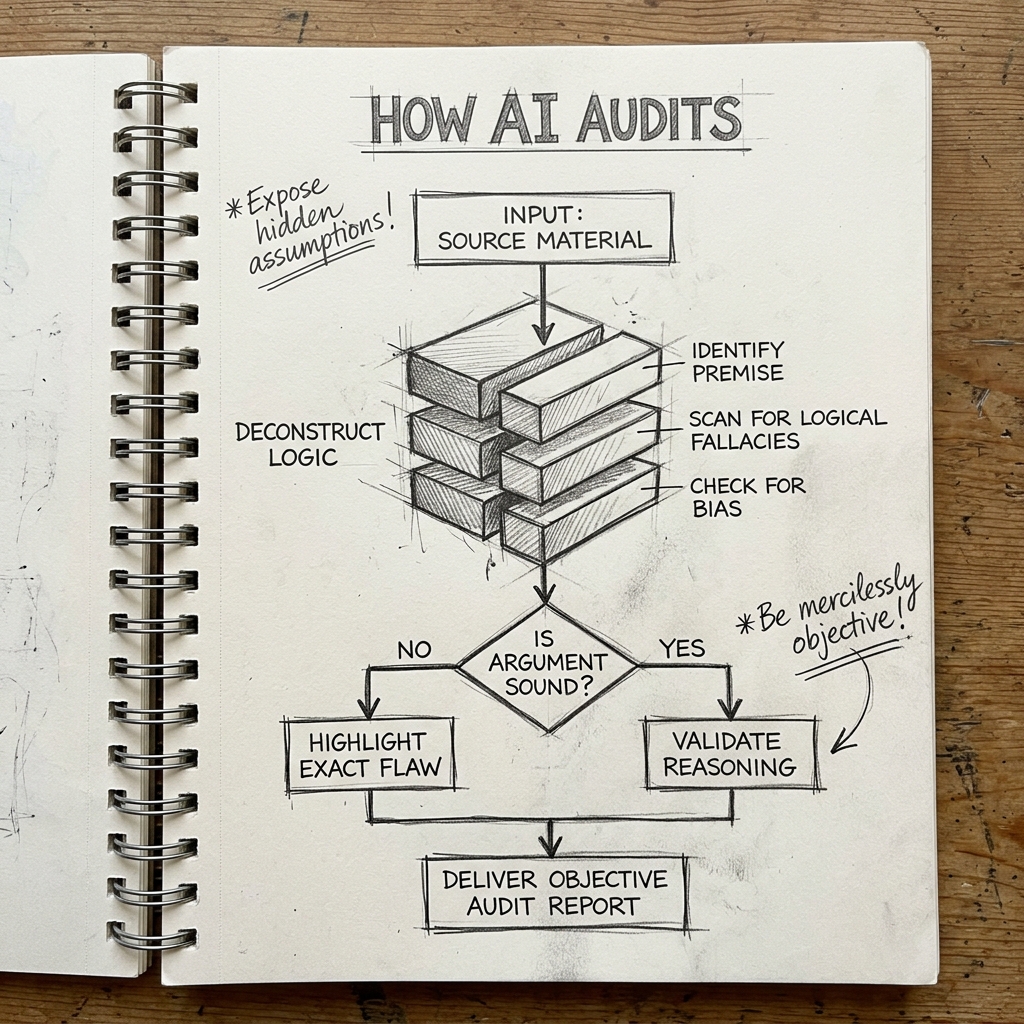 HOW AI AUDITS
*Expose
hidden
assumptions!
INPUT:
SOURCE MATERIAL
IDENTIFY
PREMISE
SCAN FOR LOGICAL
FALLACIES
CHECK FOR
BIAS
DECONSTRUCT
LOGIC
*Be mercilessly
objective!
IS
ARGUMENT
SOUND?
NO
YES
HIGHLIGHT
EXACT FLAW
VALIDATE
REASONING
DELIVER OBJECTIVE
AUDIT REPORT